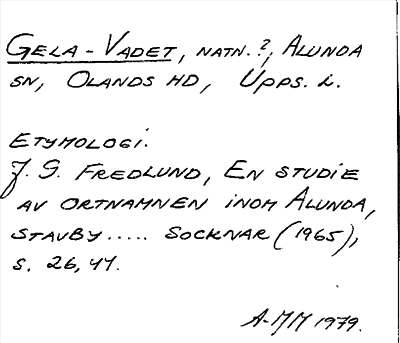 GELA-VADET, NATN.?, ALUNDA
SN, OLANDS HD, UPPS. L.
ETYMOLOGI.
J. G. FREDLUND, EN STUDIE
AV ORTNAMNEN INOM ALUNDA,
STAVBY..... SOCKNAR (1965),
S. 26, 47.
A-MM 1979.